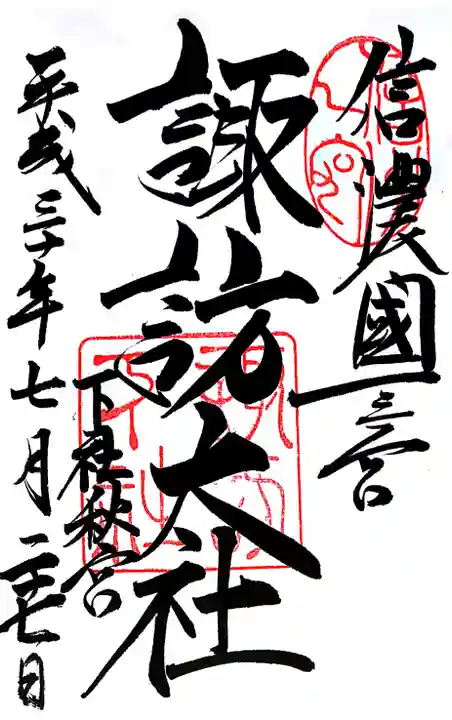 信濃國一之宮
諏訪大社
下社秋宮
平成三十年七月二十七日